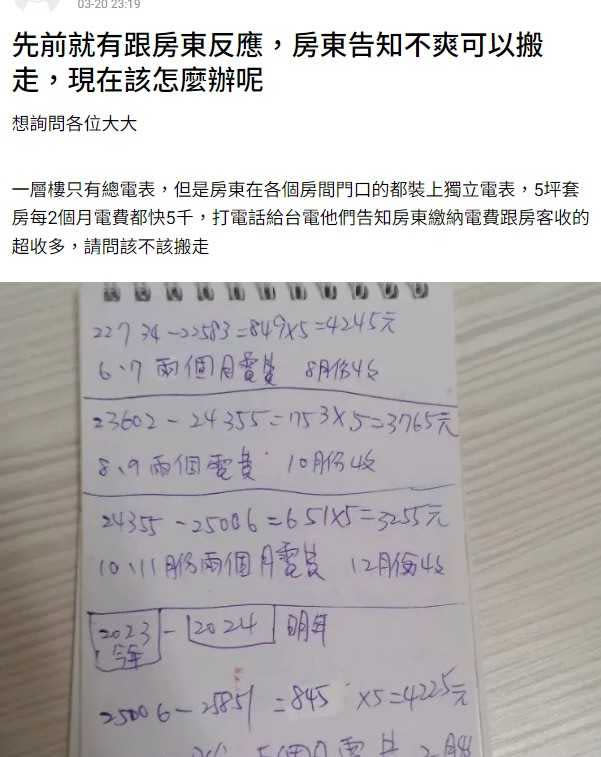 03-20 23:19
先前就有跟房東反應，房東告知不爽可以搬
走，現在該怎麼辦呢
想詢問各位大大
一層樓只有總電表，但是房東在各個房間門口的都裝上獨立電表，5坪套
房每2個月電費都快5千，打電話給台電他們告知房東繳納電費跟房客收的
超收多，請問該不該搬走
22734-22583=849×5=4245元
6、7兩個月電費 8月份收
23602-24355=753×5=3765元
8、9兩個電費 10月份收
24355-25006=651×5=3255元
10、11月份兩個月電費 12月份收
2023-2024明年
今年
25006-25851=845×5=4225元
個月電費 2月份